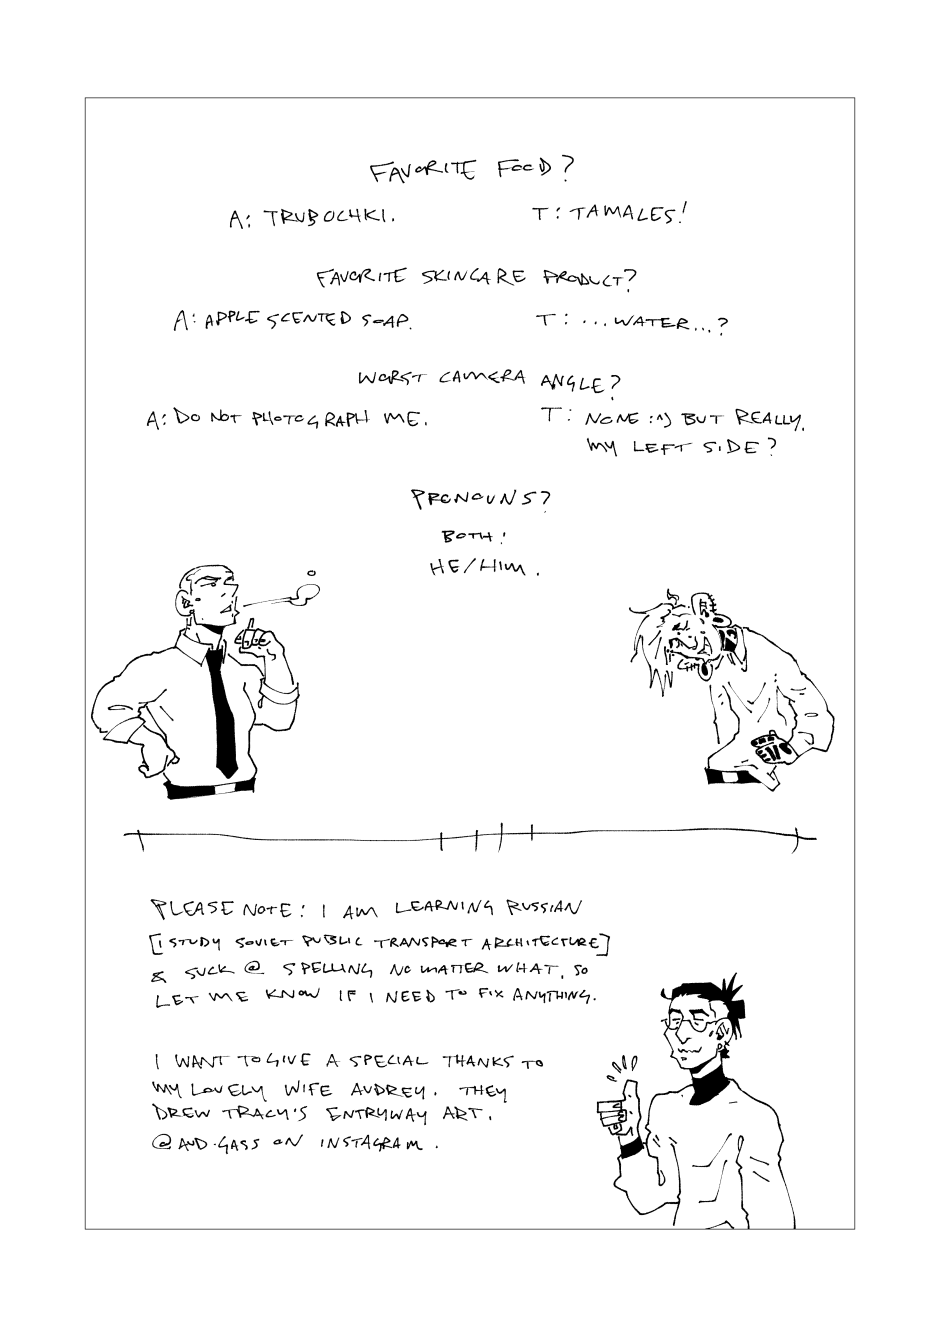 FAVORITE FOOD?
A: TRUBOCHKI. T: TAMALES!
FAVORITE SKINCARE PRODUCT?
A: APPLE SCENTED SOAP. T: ...WATER...?
WORST CAMERA ANGLE?
A: DO NOT PHOTOGRAPH ME. T: NONE :^) BUT REALLY,
MY LEFT SIDE?
PRONOUNS?
BOTH:
HE/HIM.
PLEASE NOTE: I AM LEARNING RUSSIAN
[I STUDY SOVIET PUBLIC TRANSPORT ARCHITECTURE]
& SUCK @ SPELLING NO MATTER WHAT, SO
LET ME KNOW IF I NEED TO FIX ANYTHING.
I WANT TO GIVE A SPECIAL THANKS TO
MY LOVELY WIFE AUDREY. THEY
DREW TRACY'S ENTRYWAY ART.
@AUD.GASS ON INSTAGRAM.